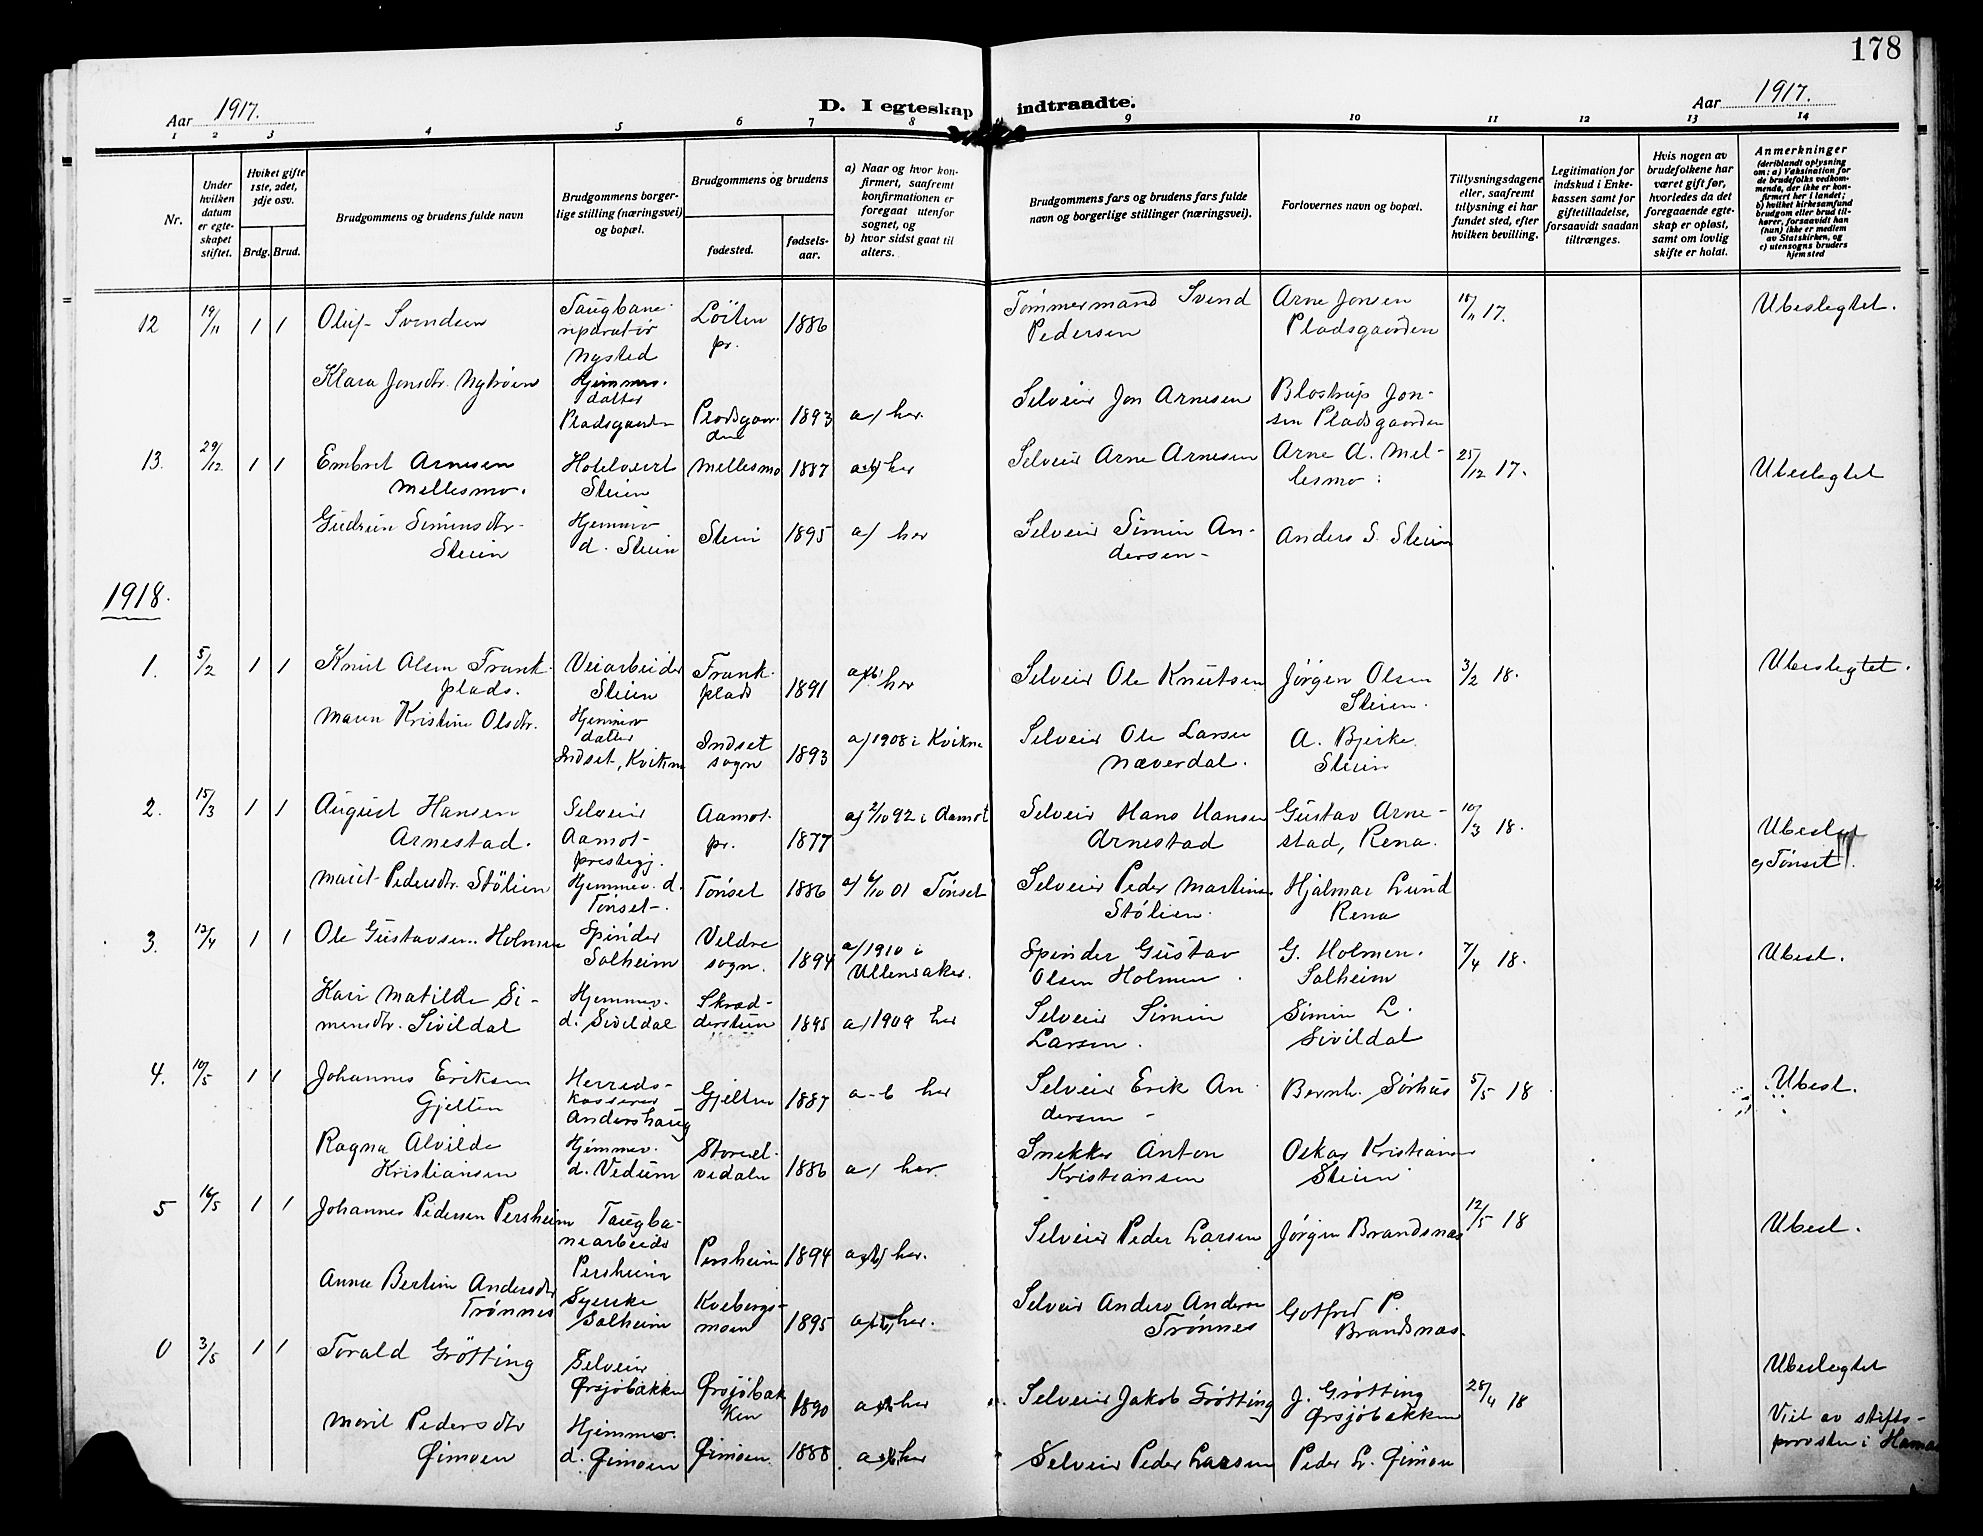 178
Aar 1917.
D. I egteskap indtraadte.
Aar 1917.
1 2 3 4 5 6 7 8 9 10 11 12 13 14
Nr.
Under hvilken datum er egteskapet stiftet.
Hviket gifte 1ste, 2det, 3dje osv.
Brdg. Brud.
Brudgommens og brudens fulde navn
Brudgommens borgerlige stilling (næringsvei) og bopæl.
Brudgommens og brudens
fødested.
fødselsaar.
a) Naar og hvor konfirmert, saafremt konfirmationen er foregaat utenfor sognet, og
b) hvor sidst gaat til alters.
Brudgommens fars og brudens fars fulde navn og borgerlige stillinger (næringsvei).
Forlovernes navn og bopæl.
Tillysningsdagene eller, saafremt tillysning ei har fundet sted, efter hvilken bevilling.
Legitimation for indskud i Enkekassen samt for giftetilladelse, forsaavidt saadan tiltrænges.
Hvis nogen av brudefolkene har været gift før, hvorledes da det foregaaende egteskap er opløst, samt om lovlig skifte er holdt.
Anmerkninger
(deriblandt oplysning om: a) Vaksination for de brudefolks vedkommende, der ikke er konfirmert her i landet;
b) hvilket kirkesamfund brudgom eller brud tilhører, forsaavidt han (hun) ikke er medlem av Statskirken, og
c) utensogns bruders hjemsted
12 19/11 1 1 Oluf Svendsen Taugbanereparatør Nysted Løiten pr. 1886 Tømmermand Svend Pedersen Arne Jonsen Pladsgaarden 18/11 17. Ubeslegtet.
Klara Jonsdtr. Nytrøen Hjemmev. datter Pladsgaarden Pladsgaarden 1893 a) her. Selveier Jon Arnesen Blostrup Jonsen Pladsgaarden
13. 29/12 1 1 Embret Arnesen Mellesmo. Hotelvert Steien Mellesmo 1887 a+b) her Selveier Arne Arnesen Arne A. Mellesmo 25/12 17. Ubeslegtet
Gudrun Simensdtr. Steien Hjemmev. d. Steien Steien 1895 a) her Selveier Simen Andersen Anders S. Steien
1918.
1. 5/2 1 1 Knut Olsen Frankplads. Veiarbeider Steien Frankplads 1891 a+b) her Selveier Ole Knutsen Jørgen Olsen Steien. 3/2 18. Ubeslegtet.
Maren Kristine Olsdtr. Hjemmev datter Indset, Kvikne Indset sogn 1893 a) 1908 i Kvikne Selveier Ole Larsen Næverdal. A. Bjerke Steien
2. 15/3 1 1 August Hansen Arnestad. Selveier Aamot prestegj. Aamot pr. 1877 a) 2/10 92 i Aamot Selveier Hans Hansen Arnestad Gustav Arnestad, Rena. 10/3 18. Ubeslegt
c) Tønset.
Marit Pedersdtr. Stølien Hjemmev. d. Tønset. Tønset 1886 a) 6/10 01 Tønset Selveier Peder Martinsen Stølien. Hjalmar Lund Rena
3. 12/4 1 1 Ole Gustavsen Holmen Spinder Solheim Veldre sogn. 1894 a) 1910 i Ullensaker. Spinder Gustav Olsen Holmen. G. Holmen. Solheim 7/4 18. Ubesl.
Kari Matilde Simensdtr. Sivildal Hjemmev. d. Sivildal Skrædderstuen 1895 a) 1909 her Selveier Simen Larsen. Simen L. Sivildal
4. 10/5 1 1 Johannes Eriksen Gjelten Herredskasserer Andershaug Gjelten 1887 a-b her Selveier Erik Andersen Bernh. Sørhus 5/5 18 Ubesl.
Ragna Alvilde Kristiansen Hjemmev. d. Vedum Storelvedalen 1886 a) her. Snekker Anton Kristiansen Oskar Kristiansen Steien
5 16/5 1 1 Johannes Pedersen Persheim Taugbanearbeider Persheim Persheim 1894 a+b) her. Selveier Peder Larsen Jørgen Brandsnæs 12/5 18 Ubesl.
Anna Bertine Andersdtr Trønnes Syerske Solheim Kvebergsmoen 1895 a+b) her. Selveier Anders Andersen Trønnes Gotfred P. Brandsnæs.
0 3/5 1 1 Torald Grøtting Selveier Ørsjøbakken Ørsjøbakken 1890 a+b her Selveier Jakob Grøtting J. Grøtting Ørsjøbakken 28/4 18 Ubeslegtet
Marit Pedersdtr Øimoen Hjemmev. d. Øimoen Øimoen 1888 a+b her Selveier Peder Larsen Peder L. Øimoen Viet av stiftsprovsten i Hamar